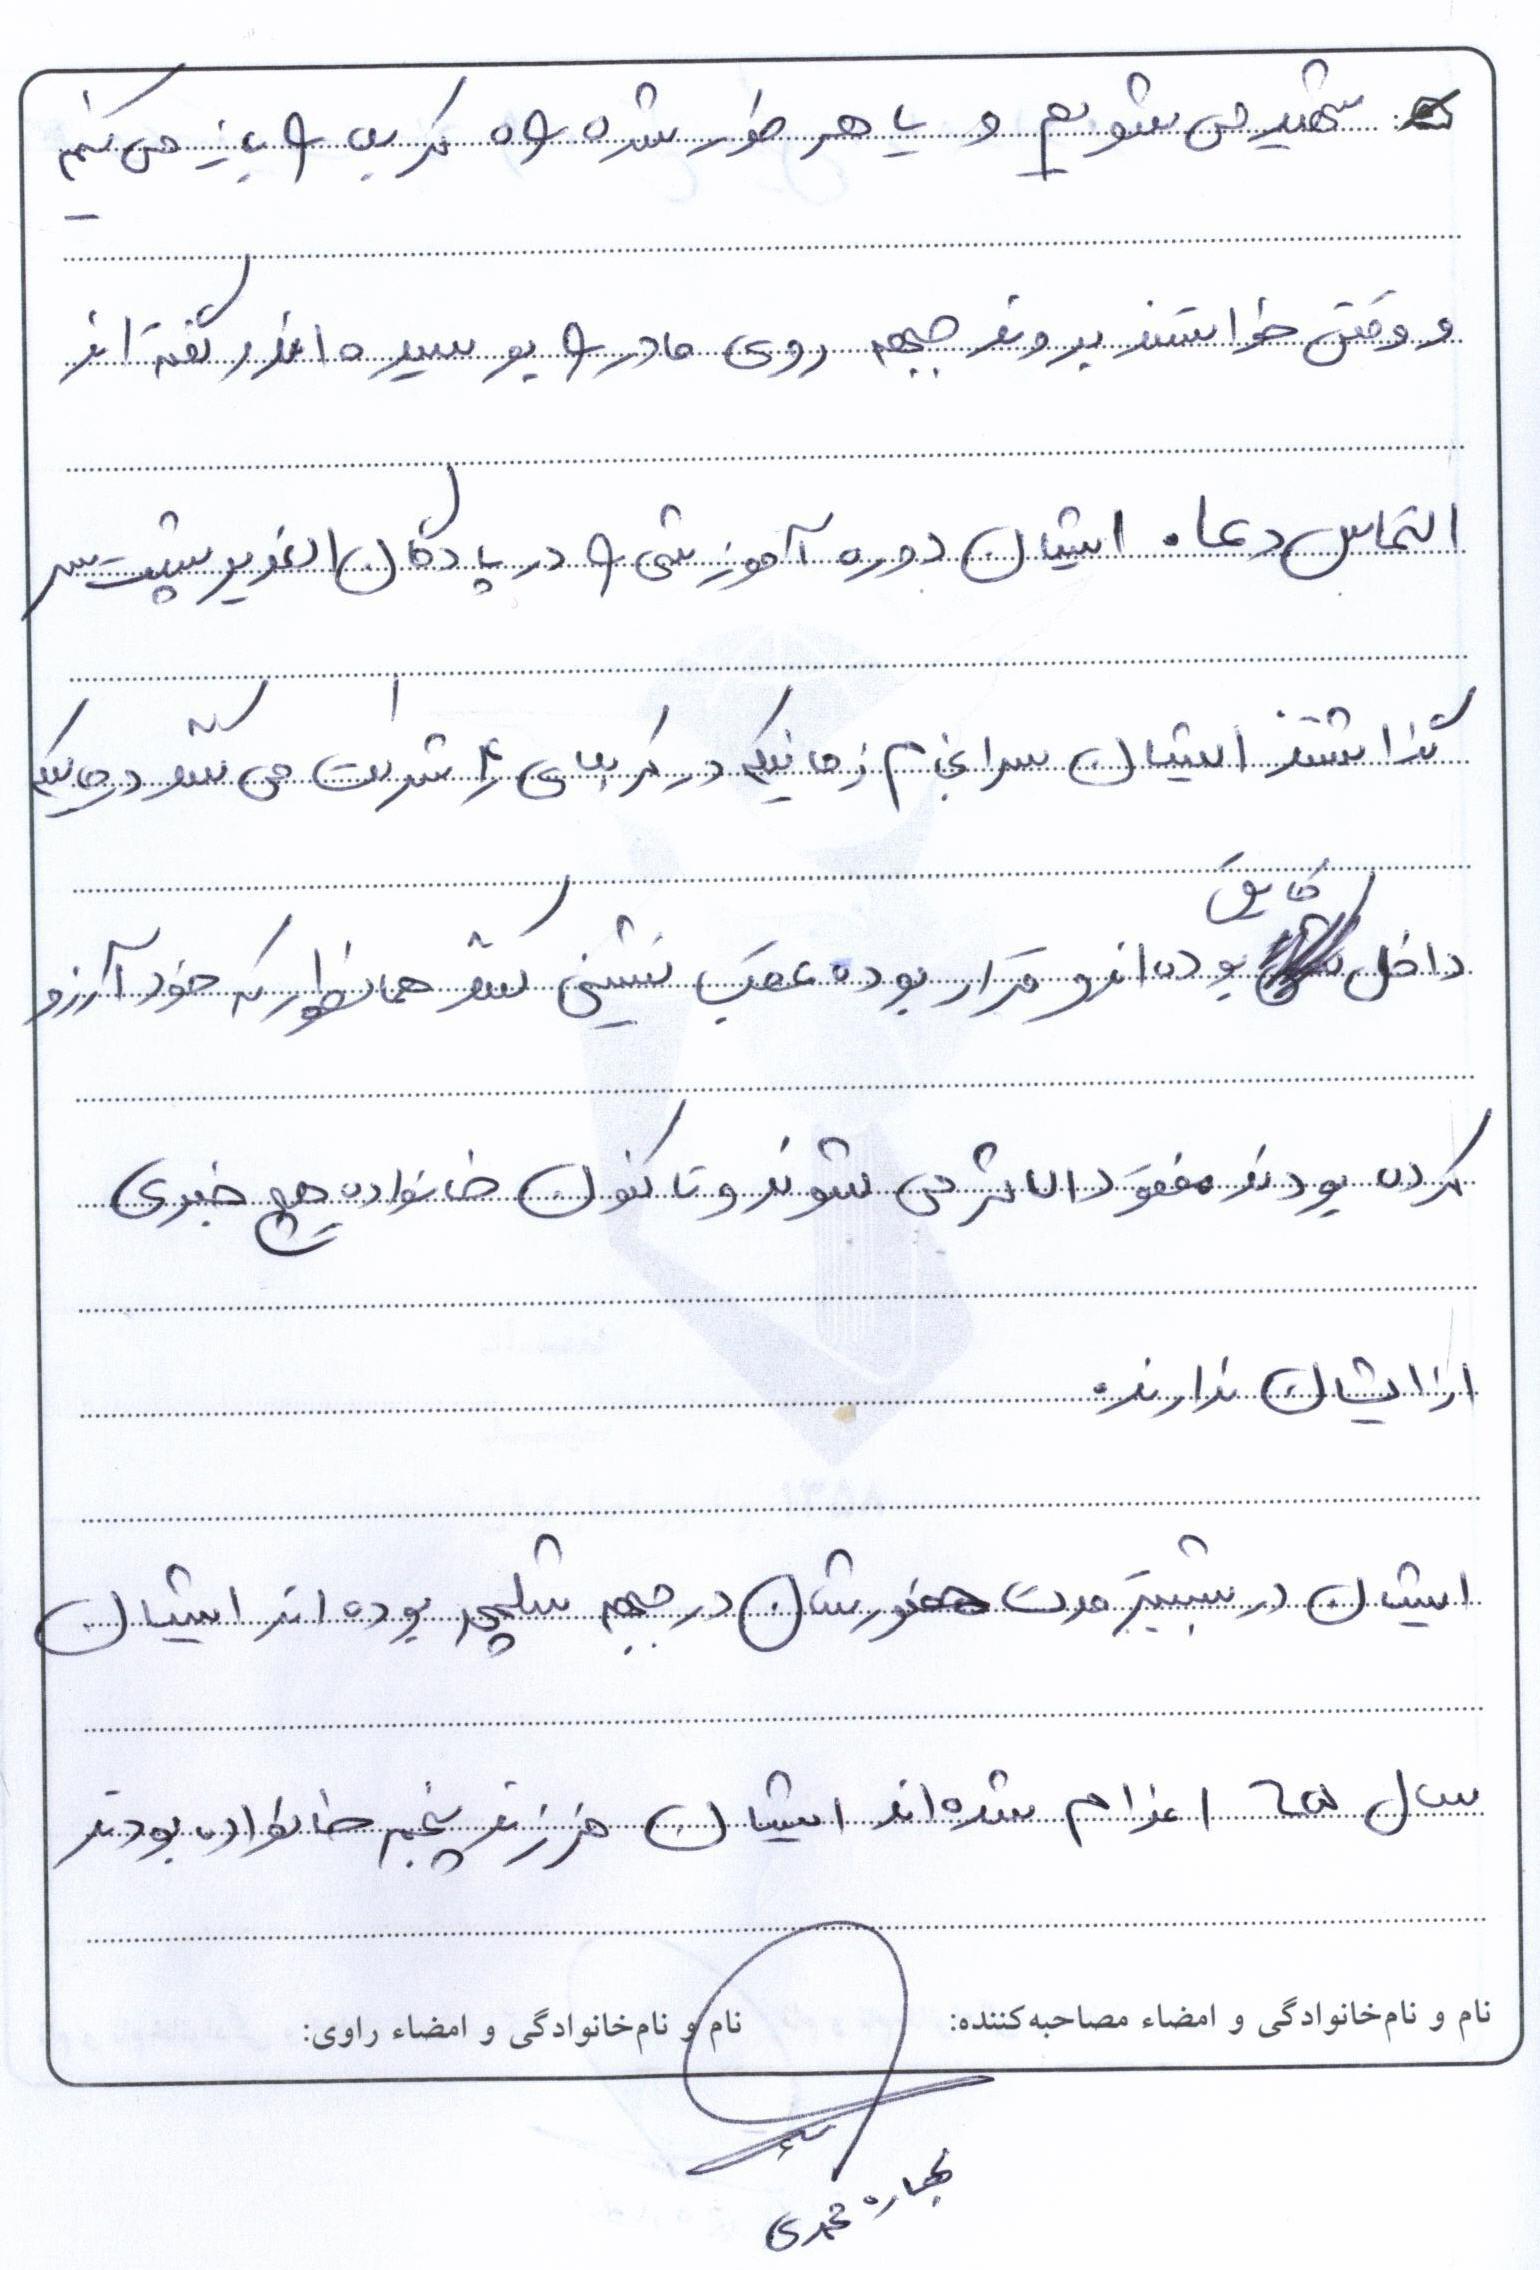 شهید می‌شویم و یا هر طور شده راه کربلا را باز می‌کنیم
و وقتی خواستند بروند جبهه روی مادر را بوسیده‌اند و گفته‌اند
التماس دعا. ایشان دوره آموزشی را در پادگان الغدیر پشت سر
گذاشتند ایشان سرانجام زمانیکه در کربلای ۴ شرکت می‌کنند در حالیکه
داخل قایق بوده‌اند و قرار بوده عقب نشینی کنند همانطور که خود آرزو
کرده بودند مفقودالاثر می‌شوند و تاکنون خانواده هیچ خبری
از ایشان ندارند.
ایشان در بیشتر مدت حضورشان در جبهه شلمچه بوده‌اند ایشان
سال ۶۵ اعزام شده‌اند ایشان فرزند پنجم خانواده بودند
نام و نام‌خانوادگی و امضاء مصاحبه‌کننده: نام و نام‌خانوادگی و امضاء راوی:
بهاره محمدی